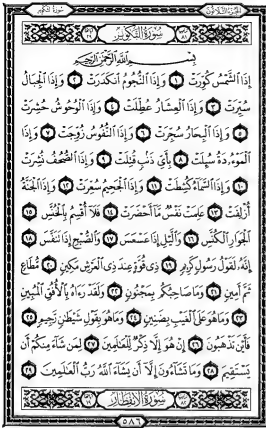 الجزء الثلاثون سورة التكوير
سُورَةُ التَّكْوِيرِ
بِسْمِ اللَّهِ الرَّحْمَٰنِ الرَّحِيمِ
إِذَا الشَّمْسُ كُوِّرَتْ ١ وَإِذَا النُّجُومُ انكَدَرَتْ ٢ وَإِذَا الْجِبَالُ
سُيِّرَتْ ٣ وَإِذَا الْعِشَارُ عُطِّلَتْ ٤ وَإِذَا الْوُحُوشُ حُشِرَتْ
٥ وَإِذَا الْبِحَارُ سُجِّرَتْ ٦ وَإِذَا النُّفُوسُ زُوِّجَتْ ٧ وَإِذَا
الْمَوْءُودَةُ سُئِلَتْ ٨ بِأَيِّ ذَنبٍ قُتِلَتْ ٩ وَإِذَا الصُّحُفُ نُشِرَتْ
١٠ وَإِذَا السَّمَاءُ كُشِطَتْ ١١ وَإِذَا الْجَحِيمُ سُعِّرَتْ ١٢ وَإِذَا الْجَنَّةُ
أُزْلِفَتْ ١٣ عَلِمَتْ نَفْسٌ مَّا أَحْضَرَتْ ١٤ فَلَا أُقْسِمُ بِالْخُنَّسِ ١٥
الْجَوَارِ الْكُنَّسِ ١٦ وَاللَّيْلِ إِذَا عَسْعَسَ ١٧ وَالصُّبْحِ إِذَا تَنَفَّسَ ١٨
إِنَّهُ لَقَوْلُ رَسُولٍ كَرِيمٍ ١٩ ذِي قُوَّةٍ عِندَ ذِي الْعَرْشِ مَكِينٍ ٢٠ مُّطَاعٍ
ثَمَّ أَمِينٍ ٢١ وَمَا صَاحِبُكُم بِمَجْنُونٍ ٢٢ وَلَقَدْ رَآهُ بِالْأُفُقِ الْمُبِينِ
٢٣ وَمَا هُوَ عَلَى الْغَيْبِ بِضَنِينٍ ٢٤ وَمَا هُوَ بِقَوْلِ شَيْطَانٍ رَّجِيمٍ ٢٥
فَأَيْنَ تَذْهَبُونَ ٢٦ إِنْ هُوَ إِلَّا ذِكْرٌ لِّلْعَالَمِينَ ٢٧ لِمَن شَاءَ مِنكُمْ أَن
يَسْتَقِيمَ ٢٨ وَمَا تَشَاءُونَ إِلَّا أَن يَشَاءَ اللَّهُ رَبُّ الْعَالَمِينَ ٢٩
سُورَةُ الانفِطَارِ
٥٨٦